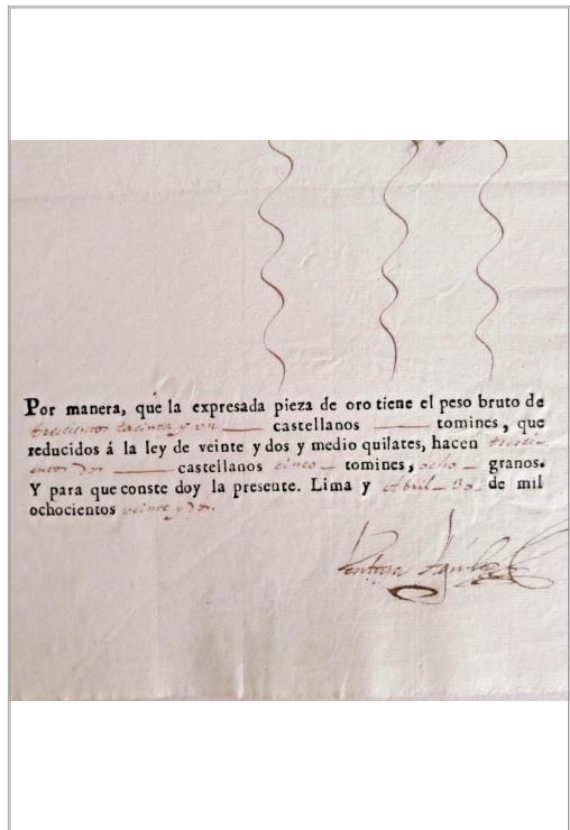 Por manera, que la expresada pieza de oro tiene el peso bruto de
trescientos treinta y un castellanos tomines, que
reducidos á la ley de veinte y dos y medio quilates, hacen treci-
entos dos castellanos cinco tomines, ocho granos.
Y para que conste doy la presente. Lima y Abril 30 de mil
ochocientos veinte y dos.